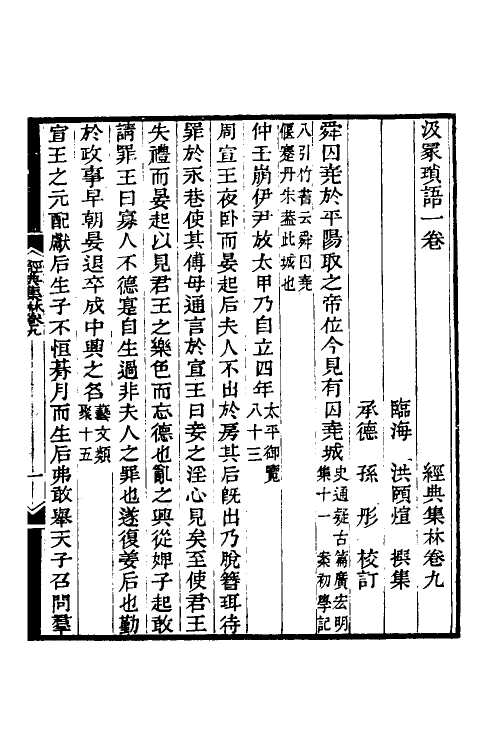 汲冢瑣語一卷　經典集林卷九
臨海　洪頤煊　撰集
承德　孫彤　校訂
舜囚堯於平陽取之帝位今見有囚堯城史通疑古篇廣宏明
集十一　案初學記
八引竹書云舜囚堯
偃塞丹朱葢此城也
仲壬崩伊尹放太甲乃自立四年太平御覽
八十三
周宣王夜卧而晏起后夫人不出於房其后旣出乃脫簪珥待
罪於永巷使其傅母通言於宣王曰妾之淫心見矣至使君王
失禮而晏起以見君王之樂色而忘德也亂之興從婢子起敢
請罪王曰寡人不德寔自生過非夫人之罪也遂復姜后也勤
於政事早朝晏退卒成中興之名藝文類
聚十五
宣王之元配獻后生子不恒朞月而生后弗敢舉天子召問羣
經典集林卷九
一